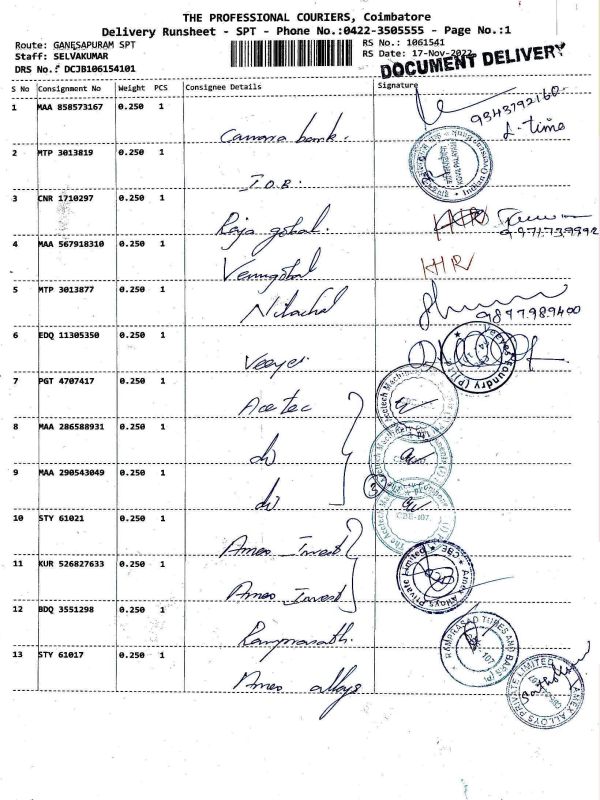 THE PROFESSIONAL COURIERS, Coimbatore
Delivery Runsheet - SPT - Phone No.:0422-3505555 - Page No.:1
Route: GANESAPURAM SPT
Staff: SELVAKUMAR
DRS No.: DCJB106154101
RS No.: 1061541
RS Date: 17-Nov-2022
DOCUMENT DELIVERY
S No Consignment No Weight PCS Consignee Details Signature
1 MAA 858573167 0.250 1 Canara bank.
9343792160.
2 MTP 3013819 0.250 1 I.O.B.
3 CNR 1710297 0.250 1 Raja gobal.
4 MAA 567918310 0.250 1 Venugobal
HR
5 MTP 3013877 0.250 1 Nilachal
9877989400
6 EDQ 11305350 0.250 1 Veeyes
Veeyes Foundry (P)
7 PGT 4707417 0.250 1 Acetec
8 MAA 286588931 0.250 1 do
9 MAA 290543049 0.250 1 do
3
CBE-107.
10 STY 61021 0.250 1 Amex Invest
11 KUR 526827633 0.250 1 Amex Invest
Amex Alloys Private Limited CBE
12 BDQ 3551298 0.250 1 Ramprasath.
RAMPRASAD TUBES AND BARS (P)
13 STY 61017 0.250 1 Amex alloys
AMEX ALLOYS PRIVATE LIMITED